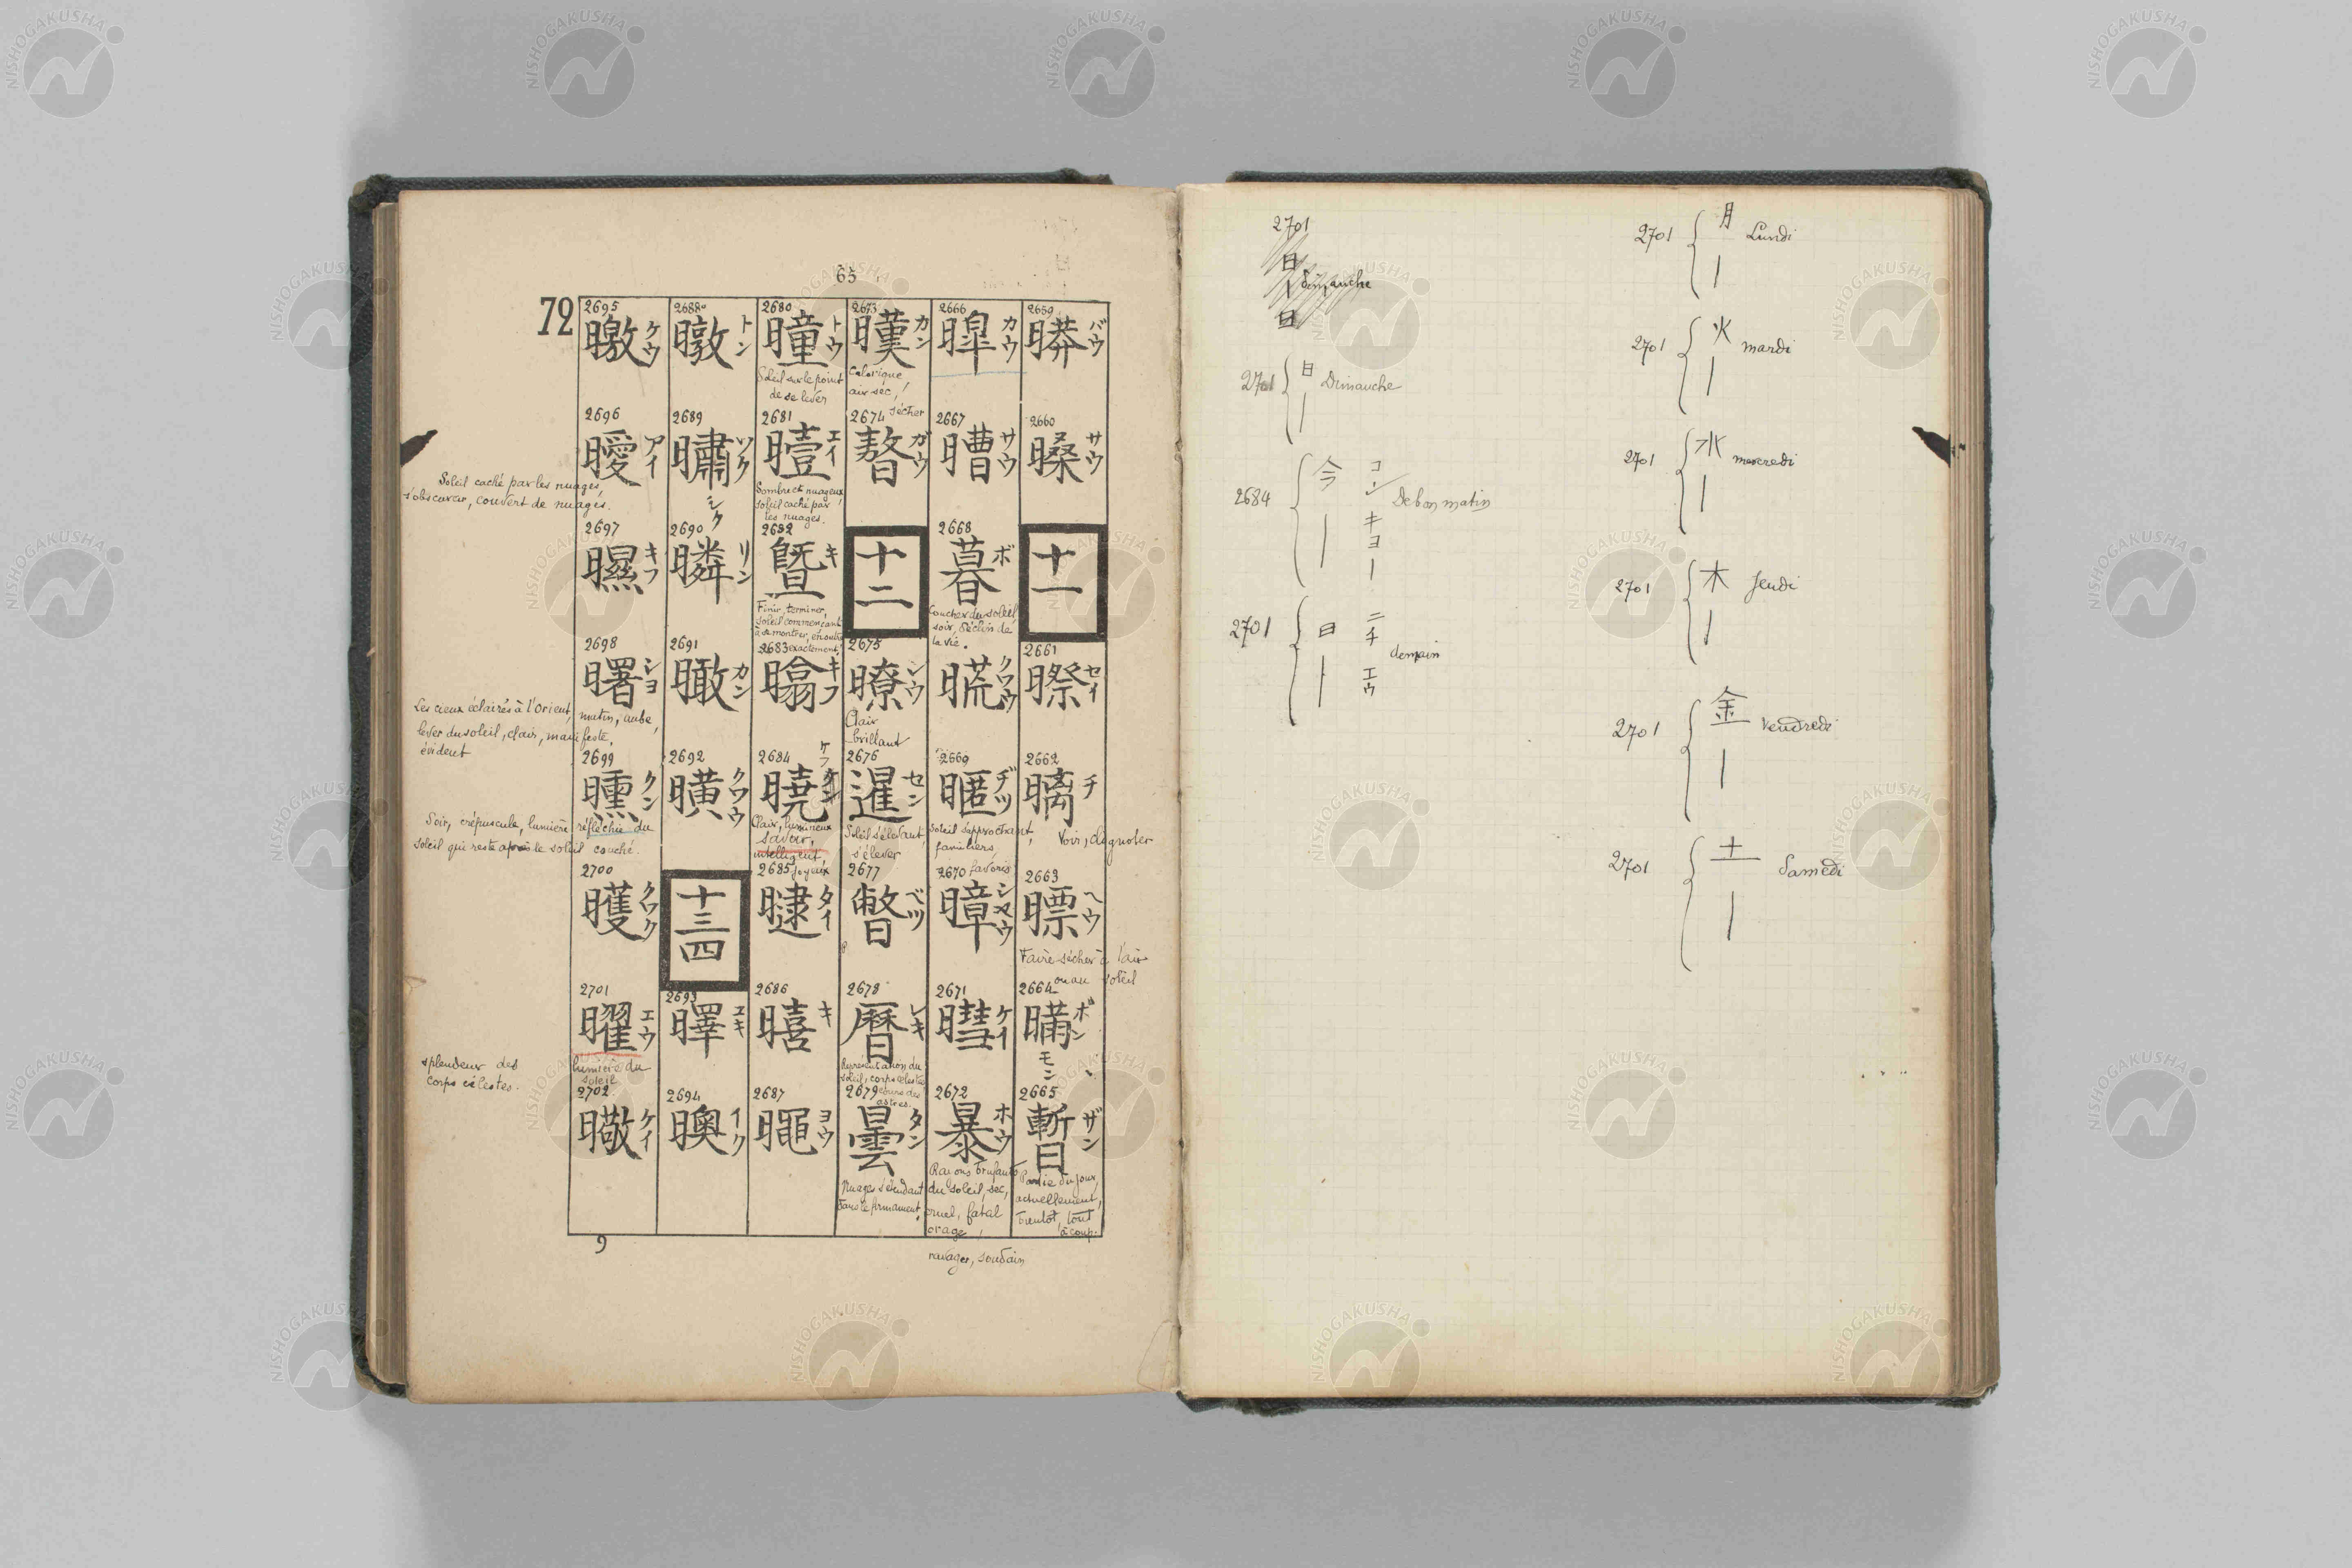 65
72
2659
バウ
2660
サウ
暩
十一
2661
セイ
2662
チ
Voir, clignoter
2663
ヘウ
Faire sécher à l'air
ou au soleil
2664
ボン
モン
2665
暫
ザン
Partie du jour,
actuellement,
bientôt, tout
à coup.
2666
暤
カウ
2667
サウ
2668
暮
ボ
Coucher du soleil,
soir, déclin de
la vie.
クワウ
2669
暱
ヂツ
Soleil s'approchant,
familiers,
favoris
2670
暲
シヤウ
2671
暳
ケイ
2672
暴
ホウ
Rayons brulants
du soleil, sec,
cruel, fatal
orage,
ravager, soudain
2673
暵
カン
Calorique,
air sec,
sécher
2674
ガウ
十二
2675
暸
Clair
brillant
2676
暹
セン
Soleil s'élevant,
s'élever
2677
暼
ベツ
2678
曆
レキ
Représentation du
soleil, corps célestes
cours des
astres.
2679
曇
タン
Nuages s'étendant
dans le firmament.
2680
曈
トウ
Soleil sur le point
de se lever
2681
曀
エイ
Sombre et nuageux
soleil caché par
les nuages.
2682
曁
キ
Finir, terminer,
soleil commençant
à se montrer, en outre
exactement,
2683
キフ
2684
曉
ケフ
Clair, lumineux
savoir,
intelligent,
joyeux
2685
タイ
2686
暿
キ
2687
ヨウ
2688
暾
トン
2689
ツク
シク
2690
暽
リン
2691
瞰
カン
2692
曂
クワウ
十三四
2693
曎
エキ
2694
燠
イク
2695
曒
ケウ
2696
曖
アイ
Soleil caché par les nuages,
s'obscurcir, couvert de nuages.
2697
キフ
2698
曙
シヨ
Les cieux éclairés à l'Orient, matin, aube,
lever du soleil, clair, manifeste,
évident
2699
曛
クン
Soir, crépuscule, lumière réfléchie du
soleil qui reste après le soleil couché.
2700
クワク
2701
曜
エウ
splendeur des
corps célestes.
lumière du
soleil
2702
ケイ
9
2701
日
｜ Dimanche
日
2701 日 Dimanche
｜
2684 今 コン De bon matin
｜ キヨー
2701 日 ニチ demain
｜ エウ
2701 月 Lundi
｜
2701 火 mardi
｜
2701 水 mercredi
｜
2701 木 Jeudi
｜
2701 金 Vendredi
｜
2701 土 Samedi
｜